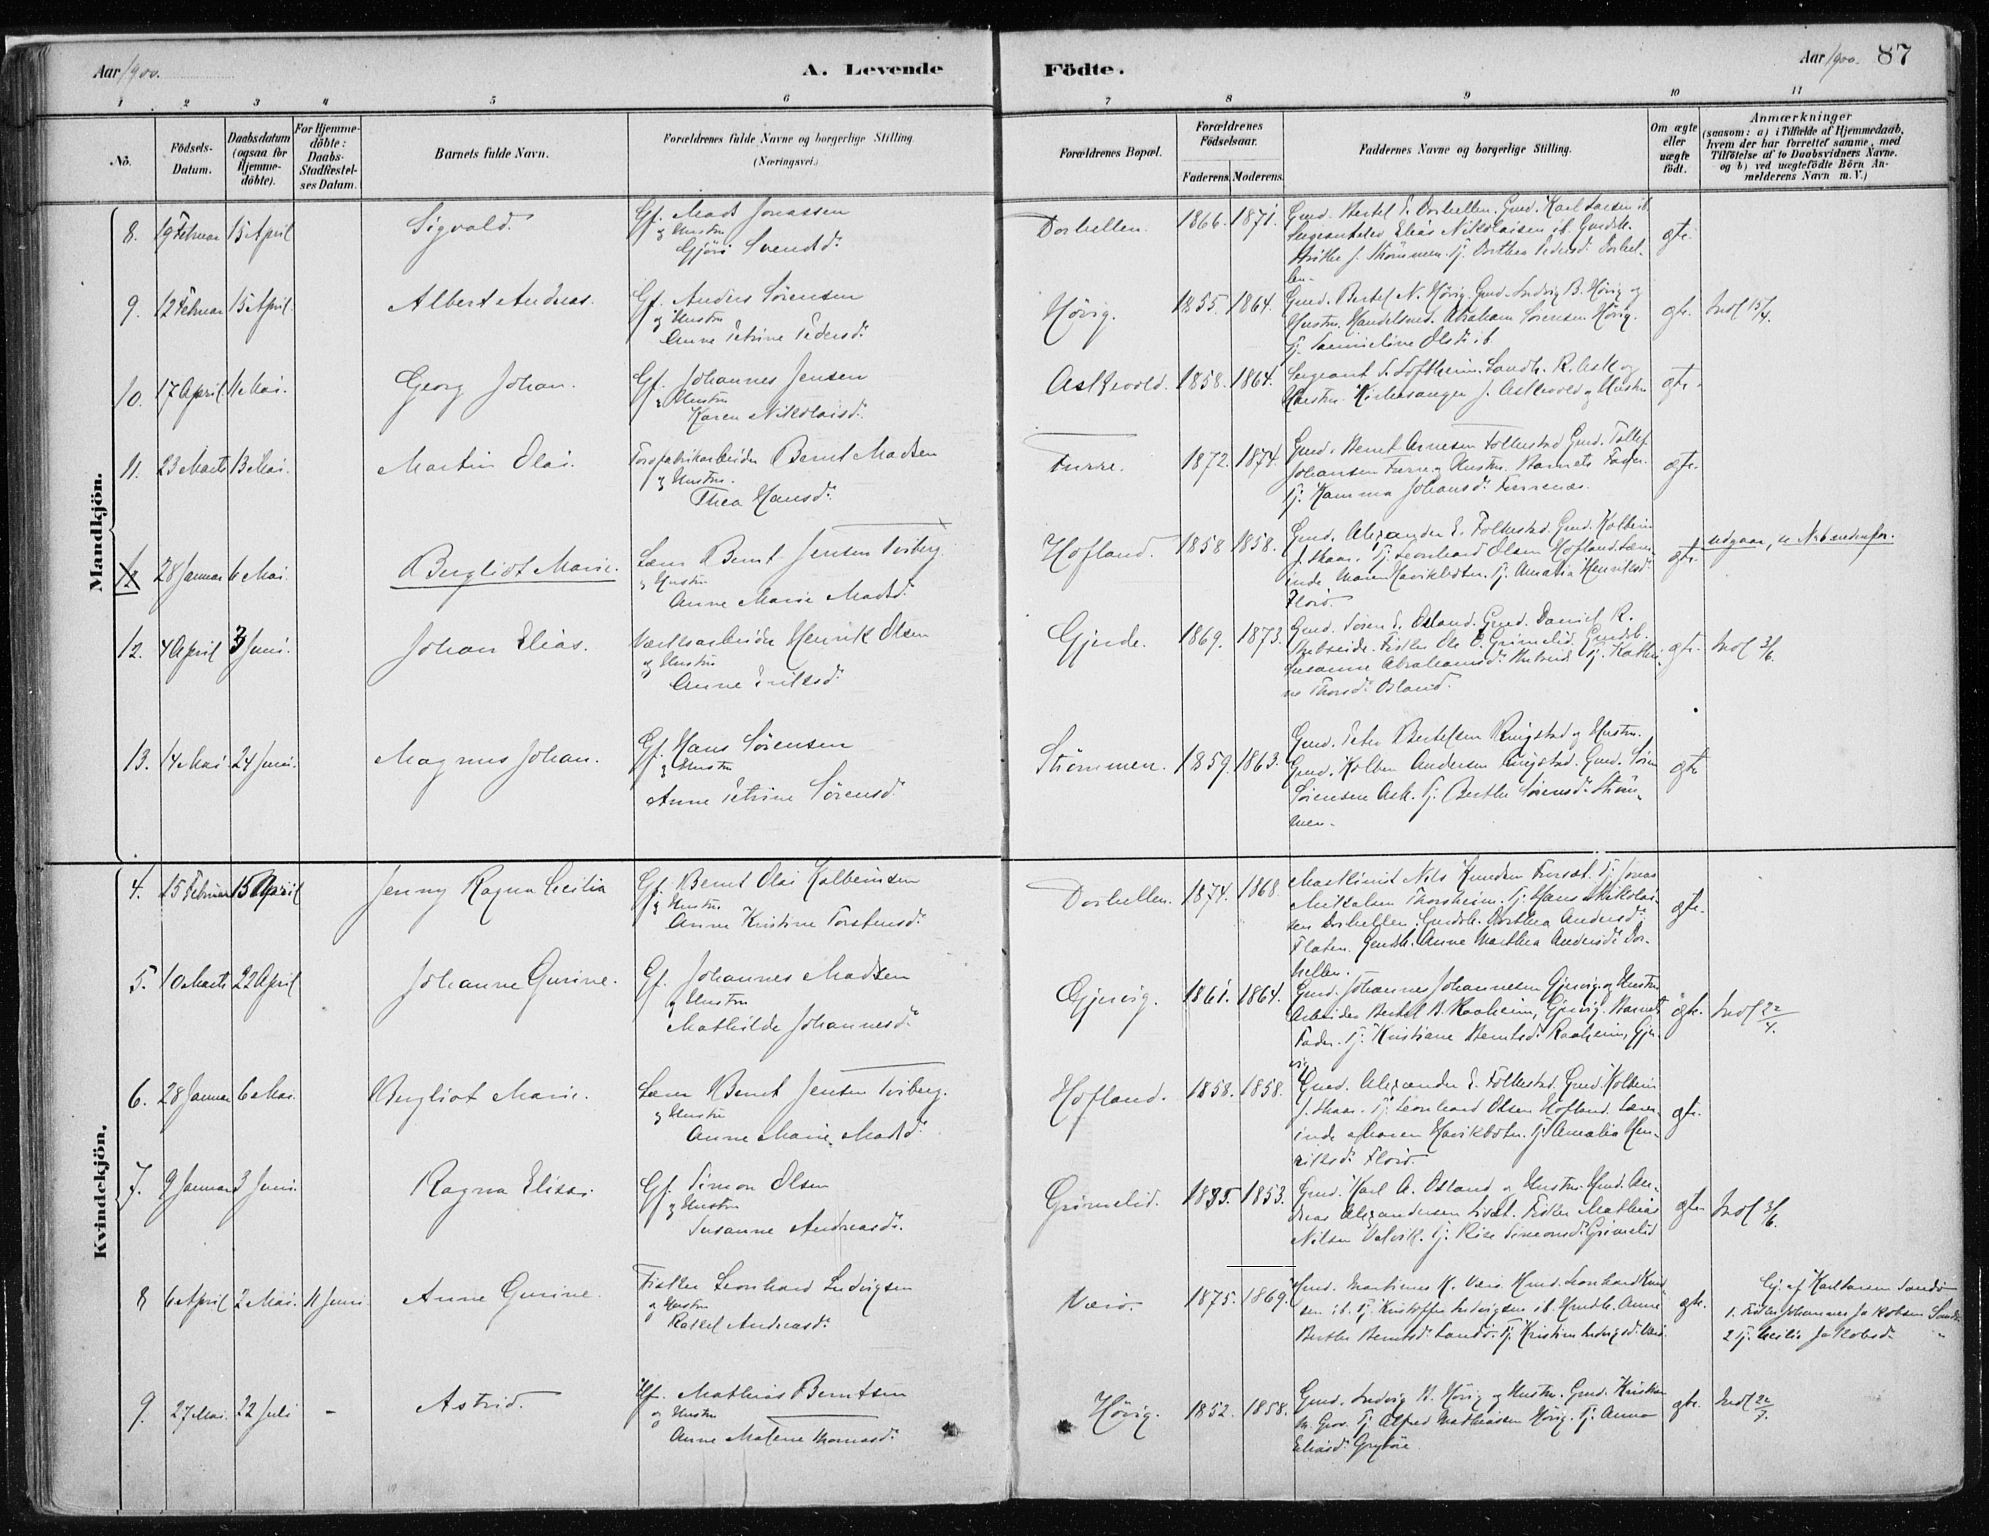 Aar 1900.
A. Levende
Födte.
Aar 1900. 87
1 2 3 4 5 6 7 8 9 10 11
No. Födsels-Datum. Daabsdatum (ogsaa for Hjemme-döbte). For Hjemme-döbte: Daabs-Stadfæstel-ses Datum. Barnets fulde Navn. Forældrenes fulde Navne og borgerlige Stilling (Næringsvei.) Forældrenes Bopæl. Forældrenes Födselsaar. Faderens. Moderens. Faddernes Navne og borgerlige Stilling. Om ægte eller uægte födt. Anmærkninger (saasom: a) i Tilfælde af Hjemmedaab, hvem der har forrettet samme, med Tilföielse af to Daabsvidners Navne, og b) ved uægtefödte Börn An-melderens Navn m. V.)
Mandkjön.
8. 19 Februar 15 April Sigvald. Gf. Mads Jonassen
og Hustru
Gjøri Svendsd. Dorhellen. 1866. 1871. Gmd. Bertel E. Dorhellen. Gmd. Karl Larsen ib.
Sergeantelev Elias Nikolaisen ib. Gmdsk.
J. Strømmen. Tj. Dorthea Pedersd. Dorhel-
len. gte.
9. 12 Februar 15 April. Albert Andreas. Gf. Anders Sørensen
og Hustru
Anne Petrine Pedersd. Høvig. 1855. 1864. Gmd. Bertel N. Høvig. Gmd. Ludvig B. Høvig og
Hustru. Handelsmd. Abraham Sørensen Høvig.
Tj. Olsd. ib. gte. Indl 15/4.
10. 17 April. 1 Mai. Georg Johan. Gf. Johannes Jensen
og Hustru
Karen Nikolaisd. Askevold. 1858. 1864. Sergeant S. Loftheim. Landh. R. Ask og
Hustru. Kirkesanger J. Askevold og Hustru gte.
11. 23 Marts 13 Mai. Martin Olai. Torvfabrikarbeider Bernt Madsen
og Hustru.
Thea Hansd. Furre. 1872. 1874. Gmd. Bernt Arnesen Folkestad Gmd. Tollef
Johansen Furre og Hustru. Barnets Fader.
Tj. Kamma Johansd. Furrenæs. gte.
12 28 Januar 6 Mai. Bergliot Marie. Lærer Bernt Jensen Tviberg
og Hustru
Anne Marie Madsd. Hofland. 1858 1858. Gmd. Alexander E. Folkestad. Gmd. Kolbein
J. Skaar. Tj. Leonhard Olsen Hofland. Lærer-
inde Maren Havikbotn. Tj. Amalia Henriksd.
Florø. gte. udgaar, se No 6 nedenfor.
12. 4 April 3 Juni. Johan Elias. Værksarbeider Henrik Olsen
og Hustru
Anne Eriksd. Gjerde. 1869. 1873. Gmd. Søren E. Osland. Gmd. Daniel R.
Fisker Ole O. Grimelid. Gmdsk.
Susanne Abrahamsd. Tj. Kathri-
ne Thorsd. Osland. gte. Indl 3/6.
13. 14 Mai. 24 Juni. Magnus Johan. Gf. Hans Sørensen
og Hustru
Anne Petrine Sørensd. Strømmen. 1859. 1863. Gmd. Peter Bertelsen Ringstad og Hustru.
Gmd. Kolben Andersen Ringstad. Gmd. Søren
Sørensen Ask. Tj. Berthe Sørensd. Strøm-
men. gte
Kvindekjön.
4. 15 Februar 15 April Jenny Ragna Cecilia Gf. Bernt Olai Kolbeinsen
og Hustru
Anne Kristine Torstensd. Dorhellen. 1874. 1868 Maskinist Nils Knudsen Fursæt. Tj. Jonas
Mikkelsen Thorsheim. Tj. Hans Nikolai-
sen Dorhellen. Gmdsk. Dorthea Andersd.
Flaten. Gmdsk. Anne Marthea Andersd. Dor-
hellen. gte.
5. 10 Marts 22 April Johanne Gurine. Gf. Johannes Madsen
og Hustru
Mathilde Johannesd. Gjervig. 1861. 1864. Gmd. Johannes Johannesen Gjervig. og Hustru
Arbeider Bertel B. Raaheim, Gjervig. Barnets
Fader. Tj. Kristiane Berntsd. Raaheim, Gjer-
vig. gte. Indl 22/4.
6. 28 Januar 6 Mai. Bergliot Marie. Lærer Bernt Jensen Tviberg.
og Hustru
Anne Marie Madsd. Hofland. 1858. 1858. Gmd. Alexander E. Folkestad. Gmd. Kolbein
J. Skaar. Tj. Leonhard Olsen Hofland. Lærer-
inde Maren Havikbotn. Tj. Amalia Hen-
riksd. Florø. gte.
7. 9 Januar 3 Juni. Ragna Elise. Gf. Simon Olsen
og Hustru
Susanne Andreasd. Grimelid. 1855. 1853. Gmd. Karl A. Osland og Hustru. Gmd. An-
dreas Alexandersen Fisker Mathias
Nilsen Valvik. Tj. Simonsd. Grimelid gte. Indl 3/6.
8 6 April 2 Mai. 11 Juni. Anne Gurine. Fisker Leonhard Ludvigsen
og Hustru
Rakel Andreasd. Værø. 1875. 1869. Hmd. Martinus K. Værø. Hmd. Leonhard Knud-
sen ib. Tj. Kristoffer Ludvigsen ib. Hmdsk. Anne
Berthe Berntsd. Sandø. Tj. Kristine Ludvigsd. Værø. gte. Hj. af Karl Larsen Sandø
1. Fisker Johannes Jakobsen Sandø
2 Tj. Cecilie Jakobsd. "
9. 27 Mai. 22 Juli - Astrid. Gf. Mathias Berntsen
og Hustru
Anne Malene Thomasd. Høvig. 1852. 1858. Gmd. Ludvig B. Høvig og Hustru. Gmd. Kristian
M. Grov. Tj. Alfred Mathiassen Høvig. Tj. Anna
Eliasd. Grytøre. gte. Indl 22/7.